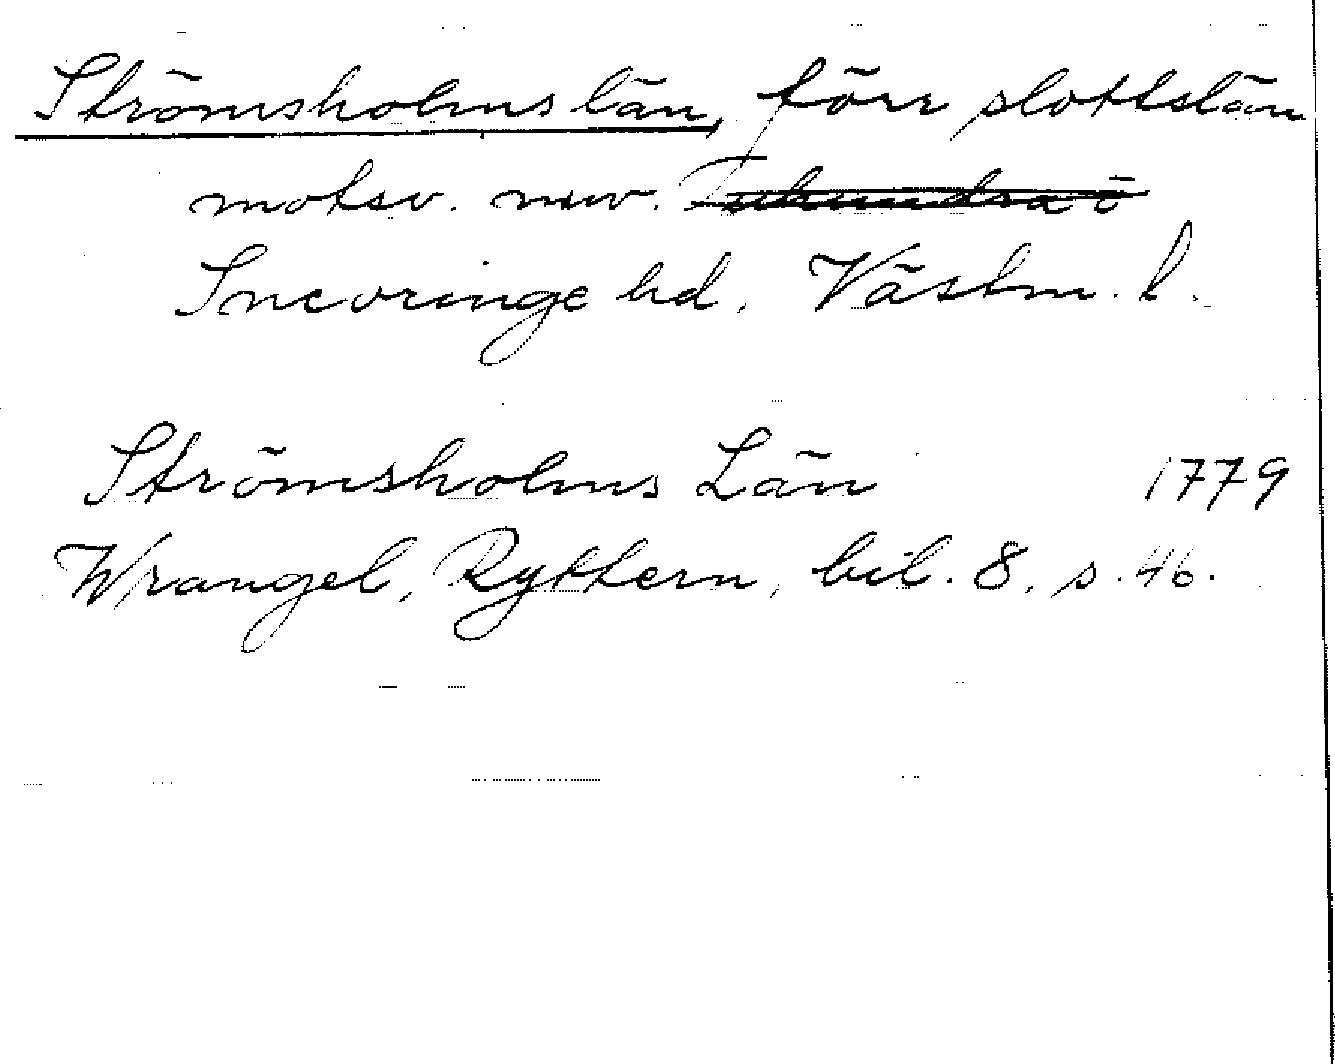 Strömsholms län, förr slottslän
motsv. nuv. Tuhundra ö
Snevringe hd, Västm. l.
Strömsholms Län 1779
Wrangel, Ryttern, bil. 8, s. 46.